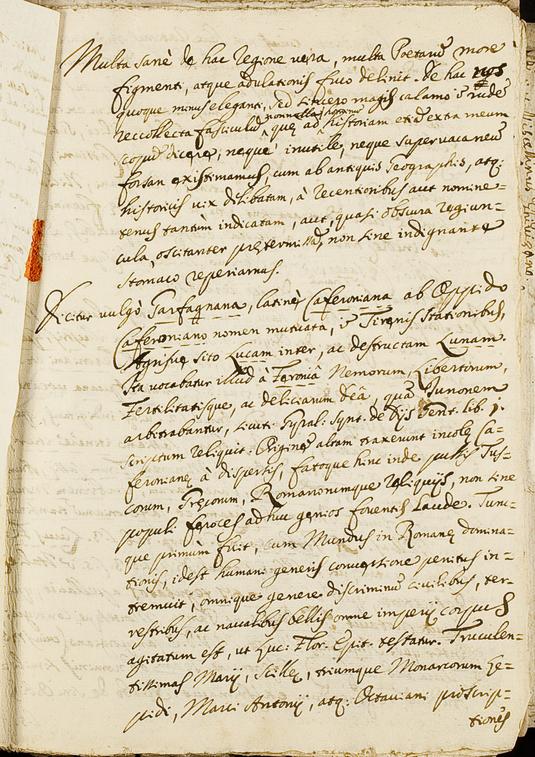 Multa sanè de hac Regione vera, multa Poetarũ more
figmenti, atque adulationis fuco delinit. De hac nos
quoque minus eleganti, sed sincero magis calamo, è rude
reccollecta fasciculũ nonnulla que ad historiam etiã extra meum
dicere, neque inutile, neque supervacaneũ
forsan existimamus, cum ab antiquis Geographis, atq;
historicis vix delibatam, à recentionibus aut nomine=
tenus tantùm indicatam, aut, quasi obscura regiun=
cula, oscitanter prętermissã, non sine indignantę
stomaco reperiamus.
Dicitur vulgò Garfagnana, latinè Caferoniana ab Oppido
Caferoniano nomen mutuata, è Tirrenis stationibus,
Agrisque sito Lucam inter, ac destructam Lunam.
Ita vocabatur illud à Feroniâ Nemorum, Libertorum,
Fertilitatisque, ac deliciarum Deâ, quã Junonem
arbitrabantur, sicuti Gyral: Synt. de Dijs Gent. lib. 1.
scriptum reliquit. Originẽ altam traxerunt incolę Ca=
feronianę à dispersis, fatoque hinc inde pulsis Tus=
corum, Gręcorum, Romanorumque reliquijs, non sine
populi feroces adhuc genios foventis laude. Tunc=
que primùm fuit, cum Mundus in Romanę domina=
tionis, idest humani generis conversione penitus in=
tremuit, omnique genere discriminũ civilibus, ter=
restribus, ac navalibus bellis omne imperij corpus
agitatum est, ut Luc: Flor. Epit. testatur. Truculen=
tissimas Marij, Scillę, triumque Monarcorum Le=
pidi, Marci Antonij, atq; Octaviani proscrip=
tiones